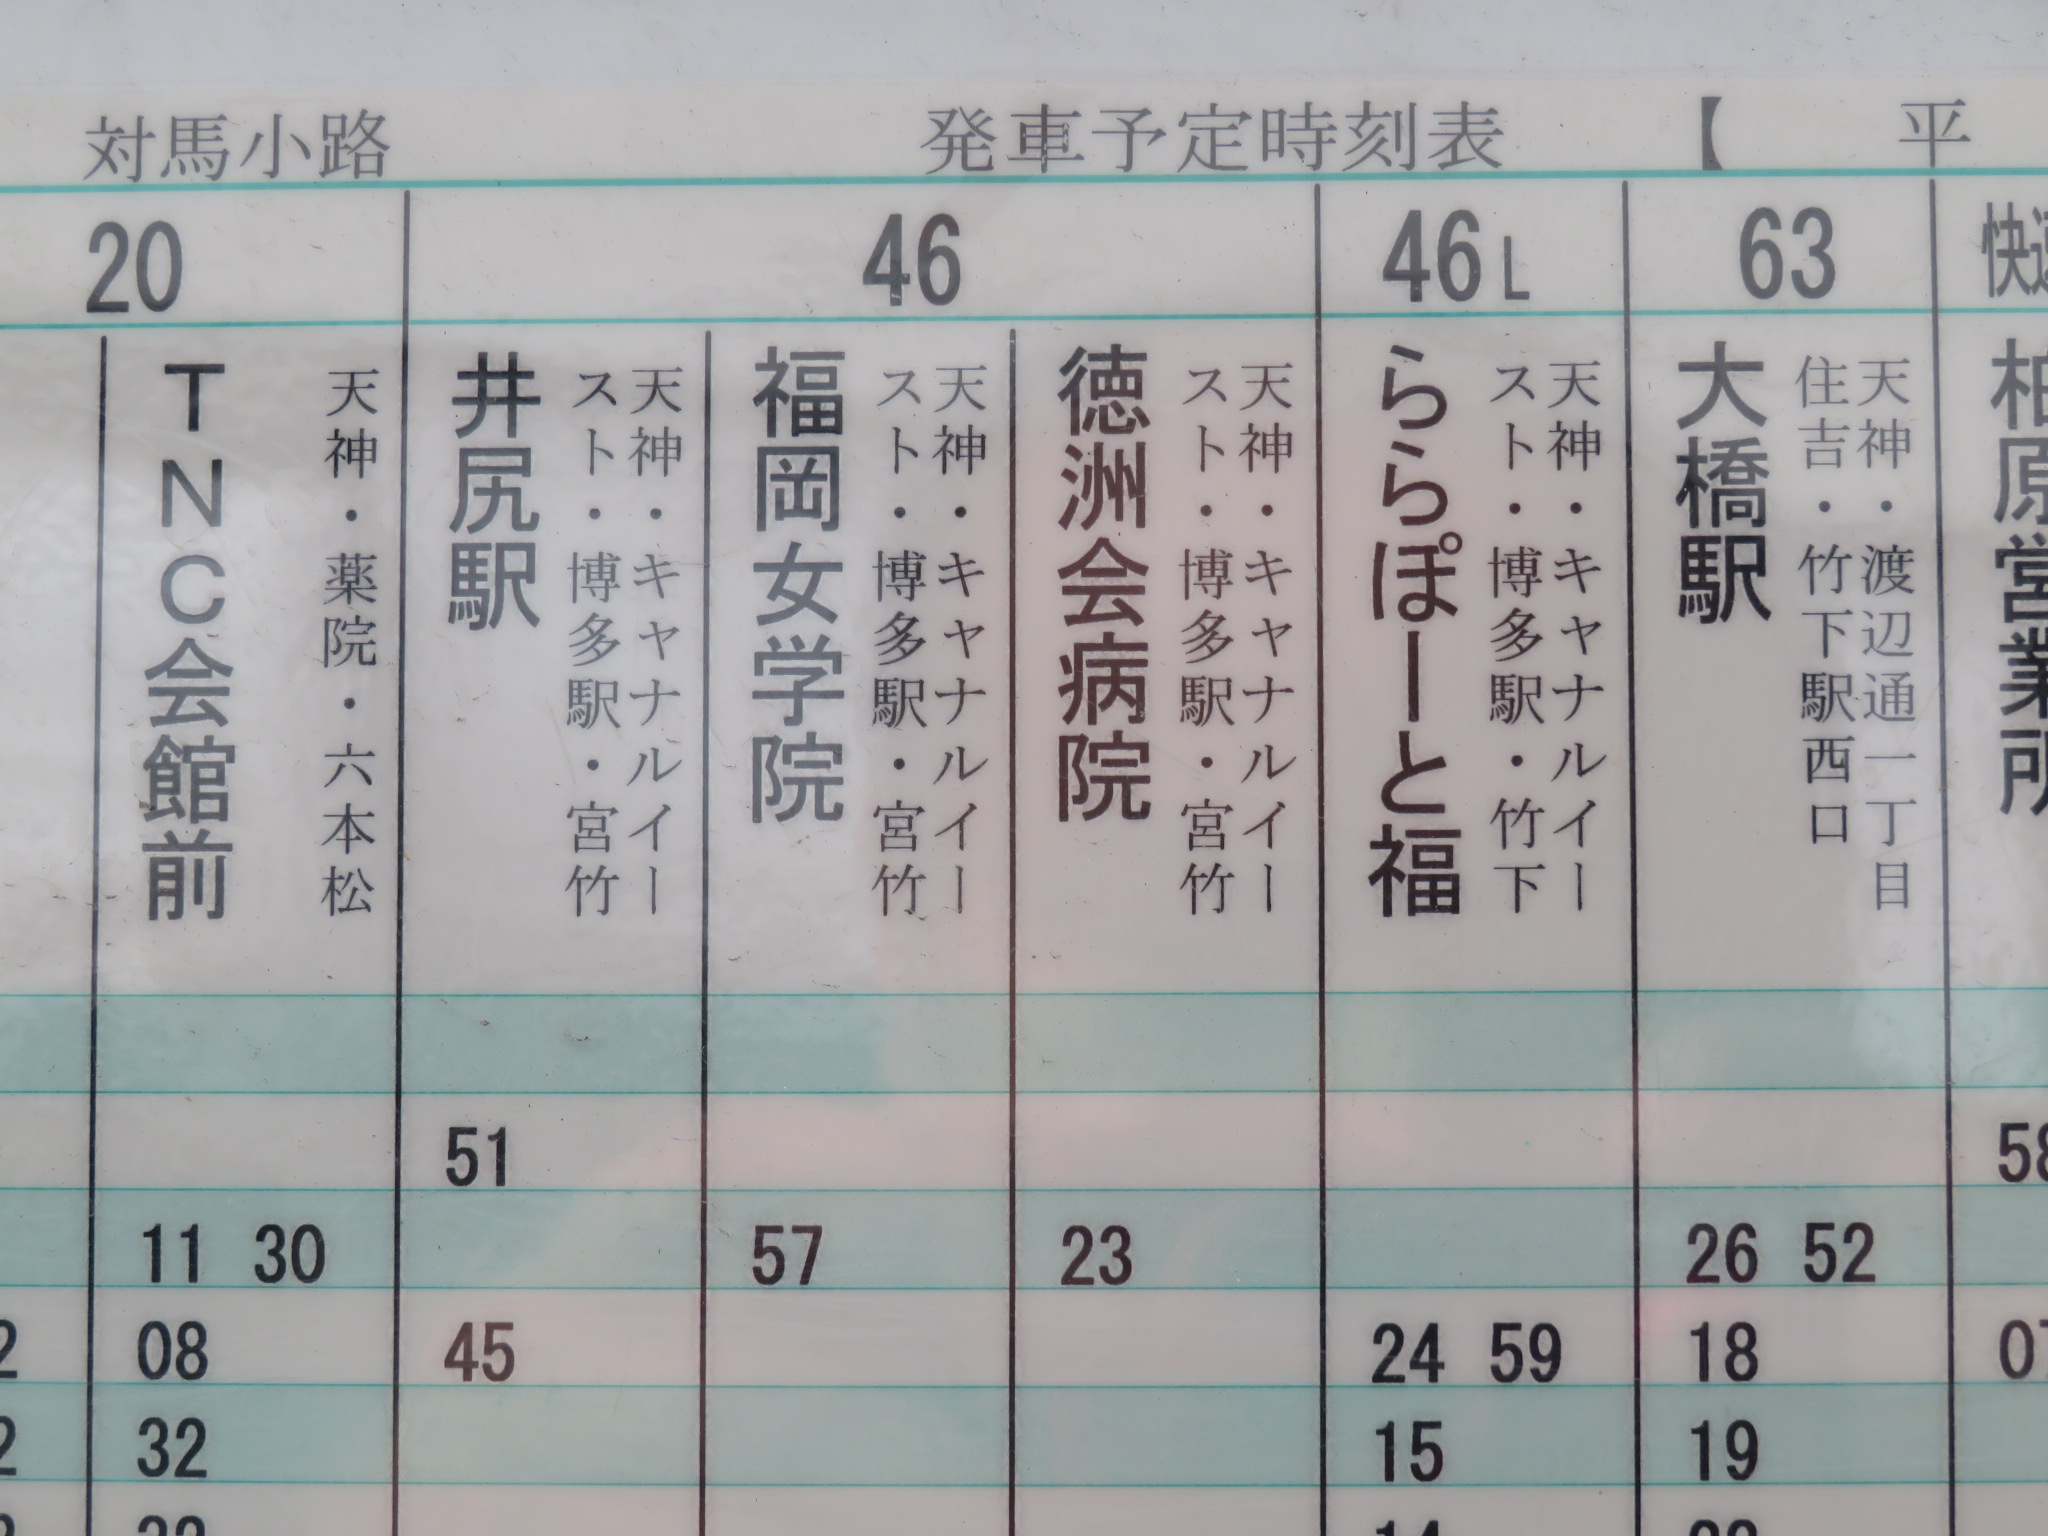 対馬小路 発車予定時刻表 【 平
20 46 46L 63 快速
TNC会館前
天神・薬院・六本松
井尻駅
天神・キャナルイー
スト・博多駅・宮竹
福岡女学院
天神・キャナルイー
スト・博多駅・宮竹
徳洲会病院
天神・キャナルイー
スト・博多駅・宮竹
ららぽーと福
天神・キャナルイー
スト・博多駅・竹下
大橋駅
天神・渡辺通一丁目
住吉・竹下駅西口
柏原営業所
51 58
11 30 57 23 26 52
2 08 45 24 59 18 07
2 32 15 19